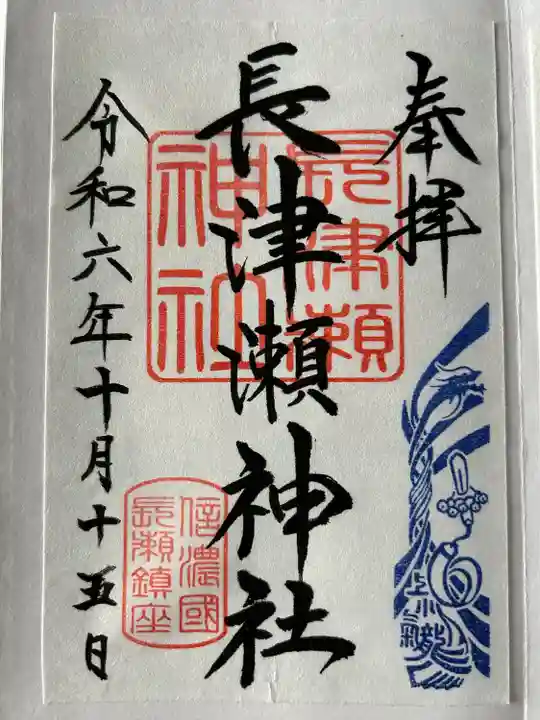 奉拝
長津瀬神社
長津瀬
神社
令和六年十月十五日
信濃國
長瀬鎮座
上小
龍